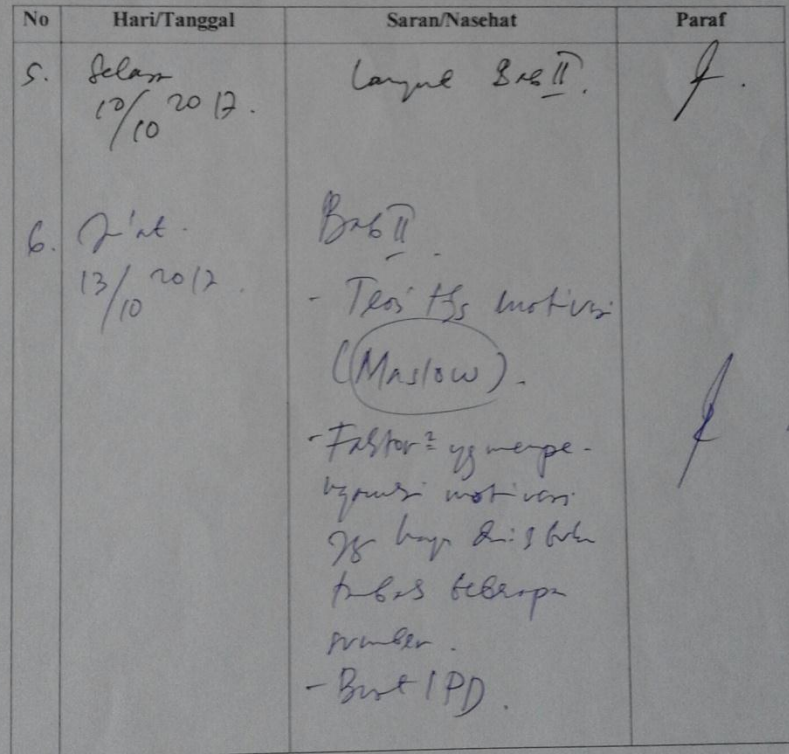 No Hari/Tanggal Saran/Nasehat Paraf
5. Selasa Lanjut Bab II.
10/10 2017.
6. Jum'at. Bab II.
13/10 2017. - Teori ttg motivasi
(Maslow).
- Faktor² yg mempe-
ngaruhi motivasi
yg hanya dari 1 buku
tambah beberapa
sumber.
- Buat IPD.